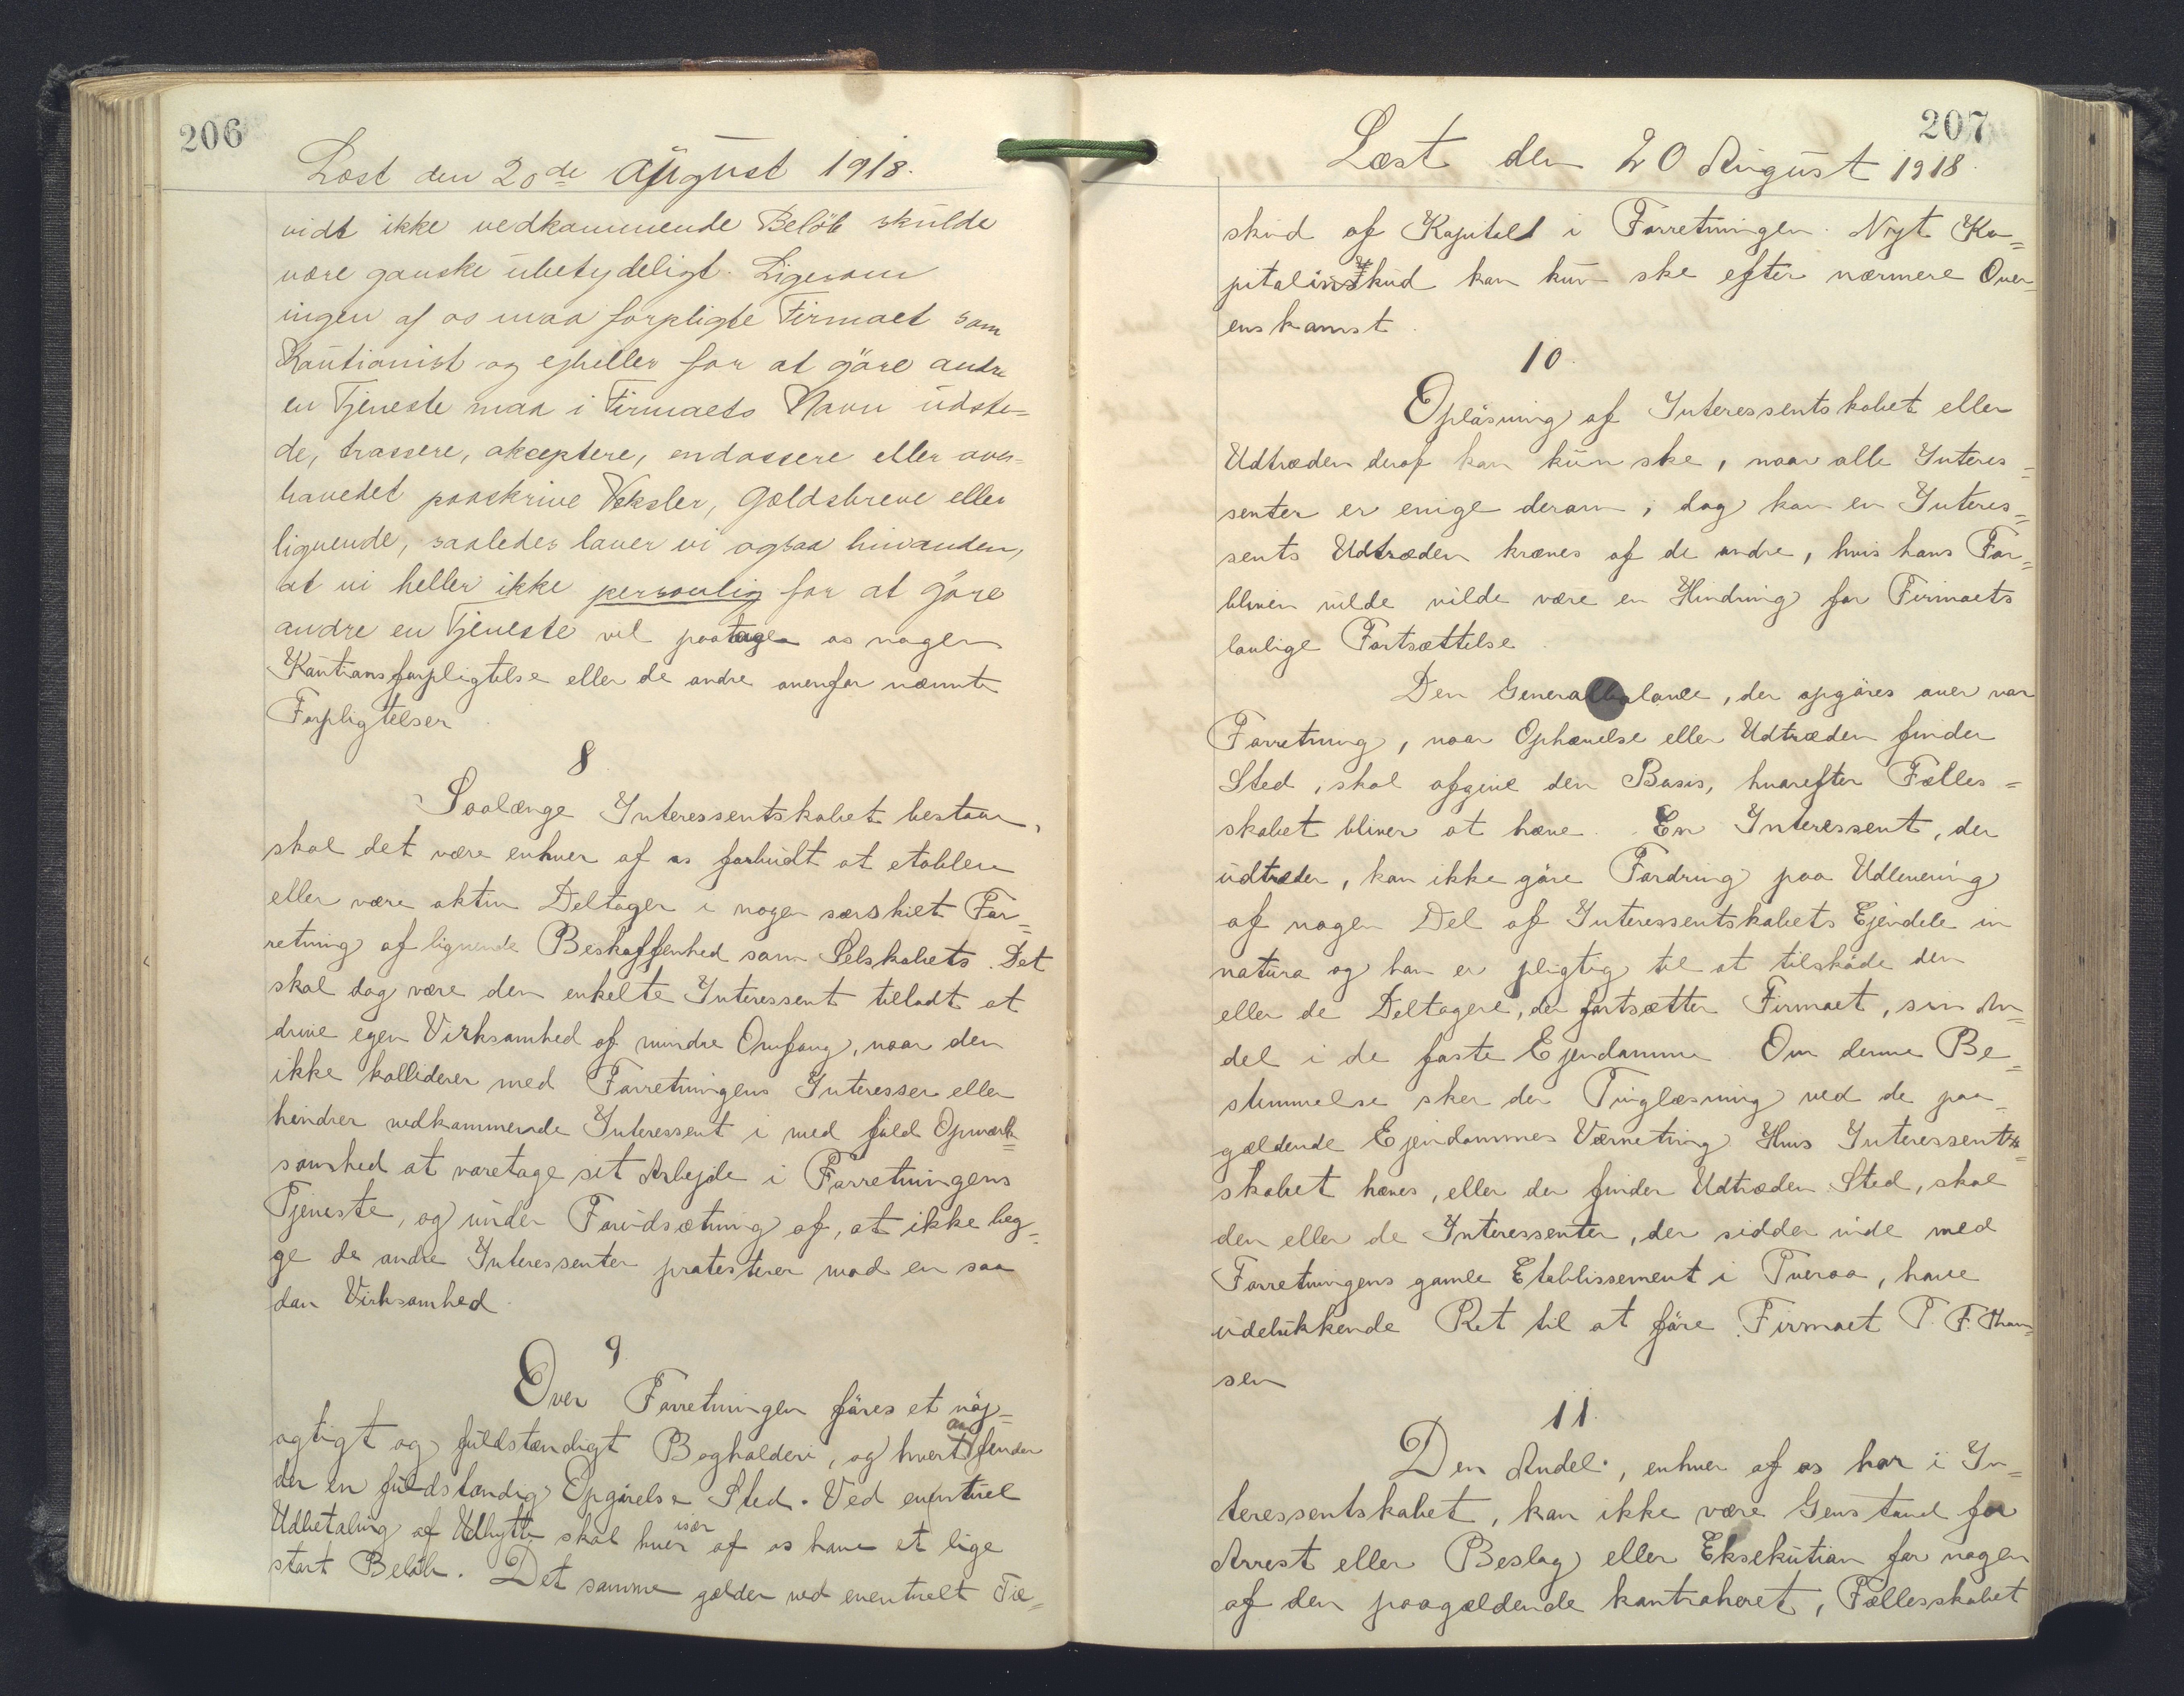 206
Læst den 20de August 1918.
vidt ikke vedkommende Beløb skulde
være ganske ubetydeligt. Ligesom
ingen af os maa forpligte Firmaet som
Kautionist og ejheller for at göre andre
en Tjeneste maa i Firmaets Navn udste=
de, trassere, akceptere, endossere eller over=
hovedet paaskrive Veksler, Gældsbreve eller
lignende, saaledes lover vi ogsaa hinanden,
at vi heller ikke personlig for at göre
andre en Tjeneste vil paatage os nogen
Kautionsforpligtelse eller de andre ovenfor nævnte
Forpligtelser.
8
Saalænge Interessentskabet bestaar,
skal det være enhver af os forbudt at etablere
eller være aktiv Deltager i nogen særskilt For=
retning af lignende Beskaffenhed som Selskabets. Det
skal dog være den enkelte Interessent tilladt at
drive egen Virksomhed af mindre Omfang, naar den
ikke kolliderer med Forretningens Interesser eller
hindrer vedkommende Interessent i med fuld Opmærk=
somhed at varetage sit Arbejde i Forretningens
Tjeneste, og under Forudsætning af, at ikke beg=
ge de andre Interessenter protesterer mod en saa
dan Virksomhed.
9
Over Forretningen föres et nöj=
agtigt og fuldstændigt Bogholderi, og hvert aar finder
der en fuldstændig Opgörelse Sted. Ved eventuel
Udbetaling af Udbytte skal hver især af os have et lige
stort Belöb. Det samme gælder ved eventuelt Til=
207
Læst den 20 August 1918.
skud af Kapital i Forretningen. Nyt Ka=
pitalinskud kan kun ske efter nærmere Over=
enskomst.
10.
Oplösning af Interessentskabet eller
Udtræden deraf kan kun ske, naar alle Interes=
senter er enige derom; dog kan en Interes=
sents Udtræden kræves af de andre, hvis hans For=
bliven vilde vilde være en Hindring for Firmaets
lovlige Fortsættelse.
Den Generalbalance, der opgöres over vor
Forretning, naar Ophævelse eller Udtræden finder
Sted, skal afgive den Basis, hvorefter Fælles=
skabet bliver at hæve. En Interessent, der
udtræder, kan ikke göre Fordring paa Udlevering
af nogen Del af Interessentskabets Ejendele in
natura og han er pligtig til at tilsköde den
eller de Deltagere, der fortsætter Firmaet, sin An=
del i de faste Ejendomme. Om denne Be=
stemmelse sker der Tinglæsning ved de paa=
gældende Ejendommes Værneting. Hvis Interessent=
skabet hæves, eller der finder Udtræden Sted, skal
den eller de Interessenter, der sidder inde med
Forretningens gamle Etablissement i Tveraa, have
udelukkende Ret til at före Firmaet T. F. Thom=
sen
11.
Den Andel, enhver af os har i In=
teressentskabet, kan ikke være Genstand for
Arrest eller Beslag eller Eksekution for nogen
af den paagældende kontraheret, Fællesskabet